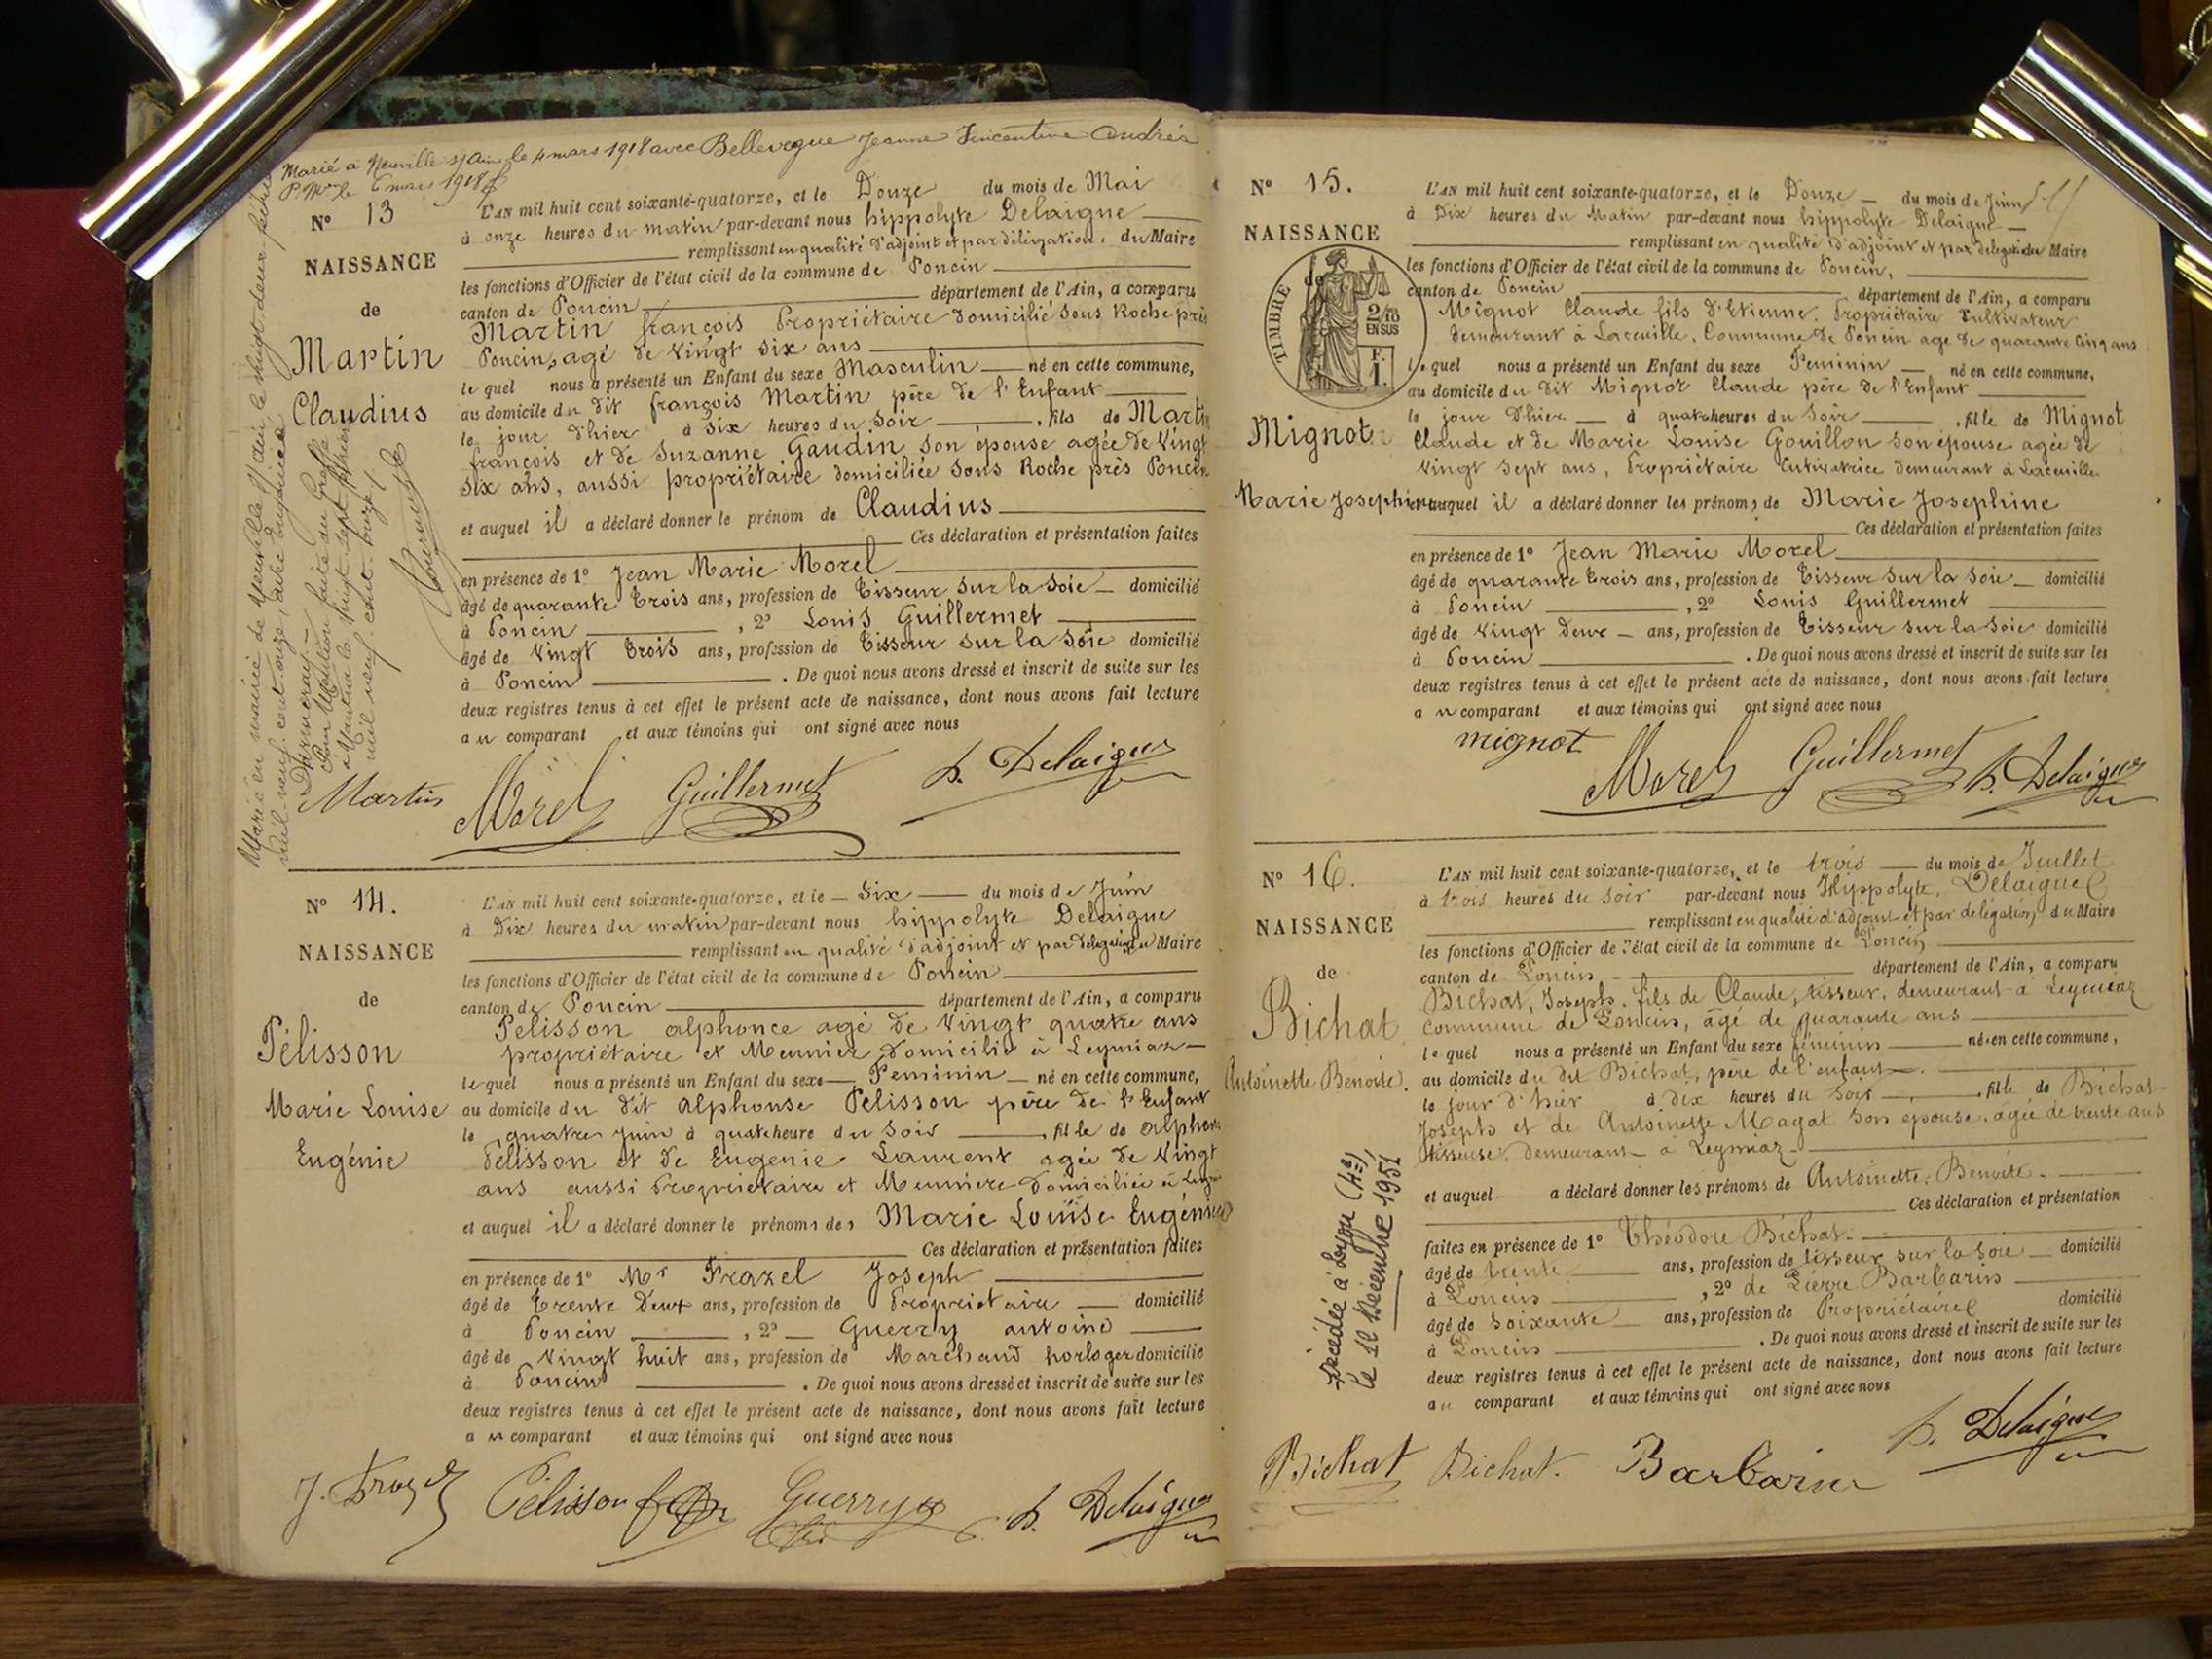 Marié à Neuville s/ Ain le 4 mars 1918 avec Bellevegue Jeanne Vincentine Andréa
le 6 mars 1918
N° 13
NAISSANCE
de
Martin
Claudius
L'AN mil huit cent soixante-quatorze, et le Douze du mois de Mai
à onze heures du matin par-devant nous hippolyte Delaigne
remplissant en qualité d'adjoint et par délégation, du Maire
les fonctions d'Officier de l'état civil de la commune de Poncin
canton de Poncin département de l'Ain, a comparu
Martin françois Propriétaire domicilié sous Roche près
Poncin, agé de vingt six ans
le quel nous a présenté un Enfant du sexe Masculin né en cette commune,
au domicile du dit françois Martin père de l'Enfant
le jour d'hier à six heures du soir , fils de Martin
françois et de Suzanne Gaudin son épouse agée de vingt
six ans, aussi propriétaire domiciliée sous Roche près Poncin
et auquel il a déclaré donner le prénom de Claudius
Ces déclaration et présentation faites
en présence de 1° Jean Marie Morel
âgé de quarante trois ans, profession de Tisseur sur la soie domicilié
à Poncin , 2° Louis Guillermet
âgé de vingt trois ans, profession de Tisseur sur la soie domicilié
à Poncin . De quoi nous avons dressé et inscrit de suite sur les
deux registres tenus à cet effet le présent acte de naissance, dont nous avons fait lecture
au comparant et aux témoins qui ont signé avec nous
Marié en mairie de Neuville s/ Ain le vingt-deux
mil neuf cent onze, avec
Pour Mention faite au Greffe
à Nantua le vingt-sept
mil neuf cent onze
Martin Morel Guillermet h. Delaigne
N° 14.
NAISSANCE
de
Pélisson
Marie Louise
Eugénie
L'AN mil huit cent soixante-quatorze, et le Six du mois de Juin
à Dix heures du matin par-devant nous hippolyte Delaigne
remplissant en qualité d'adjoint et par délégation du Maire
les fonctions d'Officier de l'état civil de la commune de Poncin
canton de Poncin département de l'Ain, a comparu
Pelisson alphonce agé de vingt quatre ans
propriétaire et Meunier domicilié à Leymiaz
le quel nous a présenté un Enfant du sexe Feminin né en cette commune,
au domicile du dit alphonse Pelisson père de l'Enfant
le quatre juin à quatre heure du soir , fille de alphonse
Pelisson et de Eugenie Laurent agée de vingt
ans aussi Propriétaire et Meunière domiciliée à
et auquel il a déclaré donner le prénoms des Marie Louïse Eugénie
Ces déclaration et présentation faites
en présence de 1° Mr Frazel Joseph
âgé de Trente Deux ans, profession de Propriétaire domicilié
à Poncin , 2° Guerry antoine
âgé de vingt huit ans, profession de Marchand horloger domicilié
à Poncin . De quoi nous avons dressé et inscrit de suite sur les
deux registres tenus à cet effet le présent acte de naissance, dont nous avons fait lecture
au comparant et aux témoins qui ont signé avec nous
J. Frazel Pelisson Guerry h. Delaigne
N° 15.
NAISSANCE
de
TIMBRE
2/10
EN SUS
F.
1.
Mignot
Marie Josephine
L'AN mil huit cent soixante-quatorze, et le Douze du mois de Juin
à Dix heures du Matin par-devant nous hippolyte Delaigne
remplissant en qualité d'adjoint et par délégation du Maire
les fonctions d'Officier de l'état civil de la commune de Poncin,
canton de Poncin département de l'Ain, a comparu
Mignot Claude fils d'Etienne. Propriétaire Cultivateur
demeurant à Laceuille, Commune de Poncin age de quarante cinq ans
le quel nous a présenté un Enfant du sexe Feminin né en cette commune,
au domicile du dit Mignot Claude père de l'Enfant
le jour d'hier à quatre heures du soir , fille de Mignot
Claude et de Marie Louise Gouillon son épouse agée de
vingt sept ans, Propriétaire Cutivatrice demeurant à Laceuille
et auquel il a déclaré donner les prénoms de Marie Josephine
Ces déclaration et présentation faites
en présence de 1° Jean Marie Morel
âgé de quarante trois ans, profession de Tisseur sur la soie domicilié
à Poncin , 2° Louis Guillermet
âgé de vingt deux ans, profession de Tisseur sur la soie domicilié
à Poncin . De quoi nous avons dressé et inscrit de suite sur les
deux registres tenus à cet effet le présent acte de naissance, dont nous avons fait lecture
au comparant et aux témoins qui ont signé avec nous
mignot Morel Guillermet h. Delaigne
N° 16.
NAISSANCE
de
Bichat
Antoinette Benoite.
L'AN mil huit cent soixante-quatorze, et le trois du mois de Juillet
à trois heures du soir par-devant nous Hippolyte, Delaigue
remplissant en qualité d'adjoint et par délégation, du Maire
les fonctions d'Officier de l'état civil de la commune de Poncin
canton de Poncin département de l'Ain, a comparu
Bichat, Joseph, fils de Claude, tisseur, demeurant à Leymiaz
commune de Poncin, âgé de quarante ans
le quel nous a présenté un Enfant du sexe féminin né en cette commune,
au domicile du dit Bichat, père de l'enfant
le jour d'hier à dix heures du soir , fille de Bichat
Joseph et de Antoinette Magat son épouse, agée de trente ans
tisseuse, demeurant à Leymiaz
et auquel a déclaré donner les prénoms de Antoinette, Benoite.
Ces déclaration et présentation
faites en présence de 1° Théodore Bichat.
âgé de trente ans, profession de tisseur sur la soie domicilié
à Poncin , 2° de Pierre Barbarin
âgé de soixante ans, profession de Propriétaire domicilié
à Poncin . De quoi nous avons dressé et inscrit de suite sur les
deux registres tenus à cet effet le présent acte de naissance, dont nous avons fait lecture
au comparant et aux témoins qui ont signé avec nous
Décédée à Lyon (4e),
le 12 Décembre 1951
Bichat Bichat. Barbarin h. Delaigne